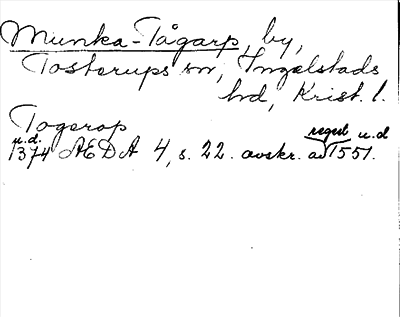 Munka-Tågarp, by,
Tosterups sn, Ingelstads
hd, Krist. l.
Togorop
u.d. regest u.d
1374 ÆDA 4, s. 22. avskr. av 1551.